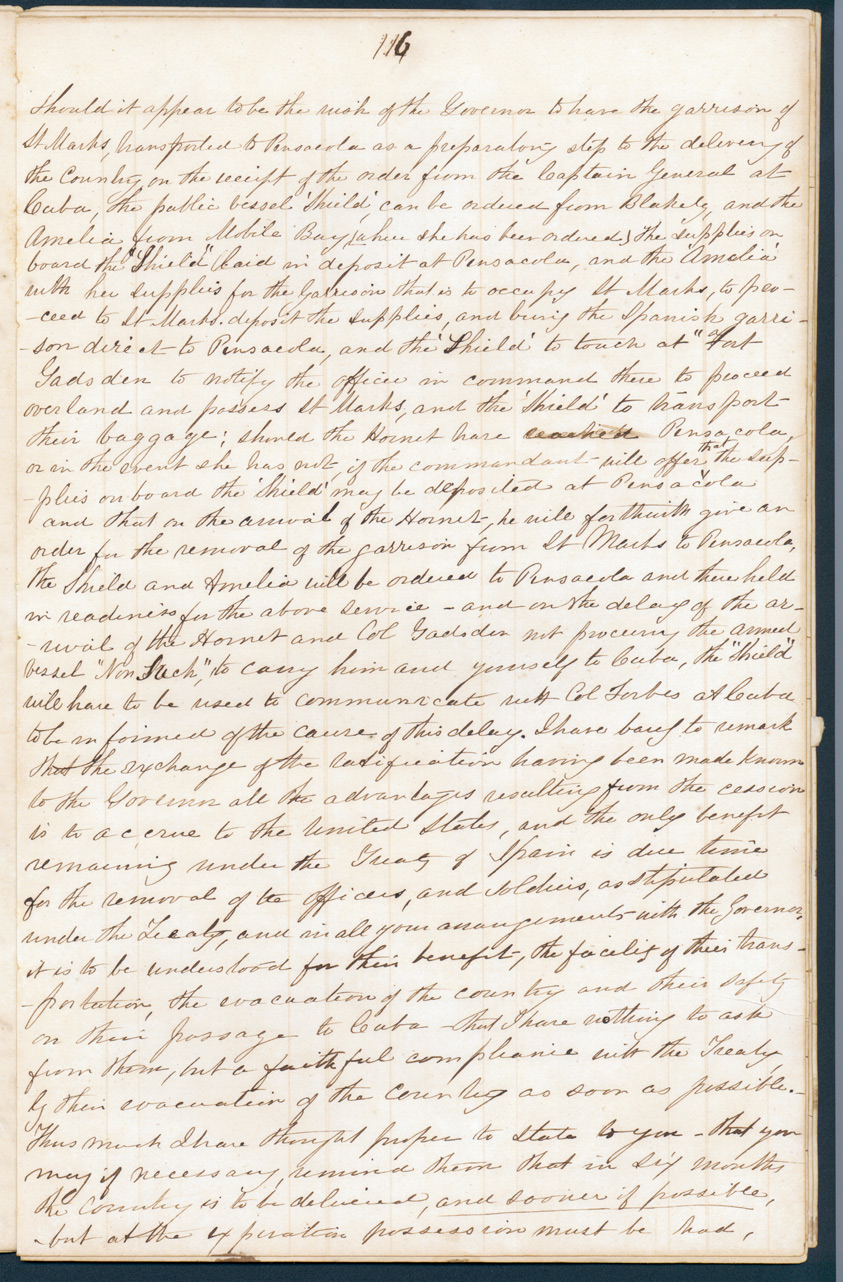 116
Should it appear to be the wish of the Governor to have the garrison of
St Marks, transported to Pensacola as a preparatory step to the delivery of
the Country, on the receipt of the order from the Captain General at
Cuba, the public vessel 'Shield', can be ordered from Blakely, and the
Amelia from Mobile Bay, (where she has been ordered) The supplies on
board the "Shield" (laid in deposit at Pensacola, and the 'Amelia'
with her supplies for the Garrison that is to occupy St Marks, to pro-
-ceed to St Marks. deposit the supplies, and bring the Spanish garri-
-son direct to Pensacola, and the 'Shield' to touch at "at Fort
Gadsden to notify the officer in command there to proceed
over land and possess St Marks, and the 'Shield' to transport
their baggage; should the Hornet have reached Pensacola,
or in the event she has not, if the commandant will offer that the sup-
-plies on board the 'Shield' may be deposited at Pensacola
and that on the arrival of the Hornet, he will forthwith give an
order for the removal of the garrison from St Marks to Pensacola,
the Shield and Amelia will be ordered to Pensacola and there held
in readiness for the above service - and on the delay of the ar-
-rival of the Hornet and Col Gadsden not procuring the armed
vessel "Non Such", to carry him and yourself to Cuba, the "Shield"
will have to be used to communicate with Col Forbes at Cuba
to be informed of the cause of this delay. I have barely to remark
that the exchange of the ratification having been made known
to the Governor all the advantages resulting from the cession
is to accrue to the United States, and the only benefit
remaining under the Treaty of Spain is due time
for the removal of the officers, and soldiers, as stipulated
under the Treaty, and in all your arrangements with the Governor,
it is to be understood for their benefit, the facility of their trans-
-portation, the evacuation of the country and their safety
on their passage to Cuba - that I have nothing to ask
from them, but a faithful compliance with the Treaty,
by their evacuation of the country as soon as possible.-
Thus much I have thought proper to state to you - that you
may if necessary, remind them that in six months
the country is to be delivered, and sooner if possible,
-but at the expiration possession must be had,